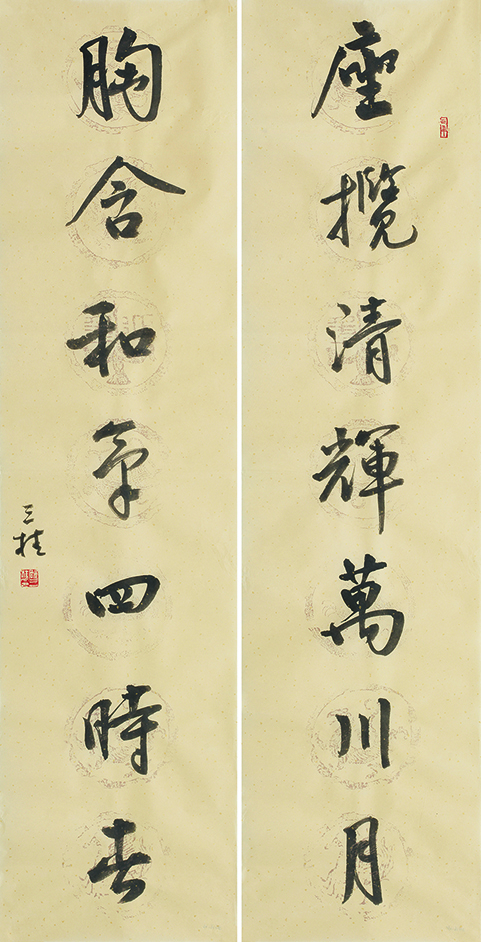 座攬清輝萬川月
胸含和氣四時春
三桂